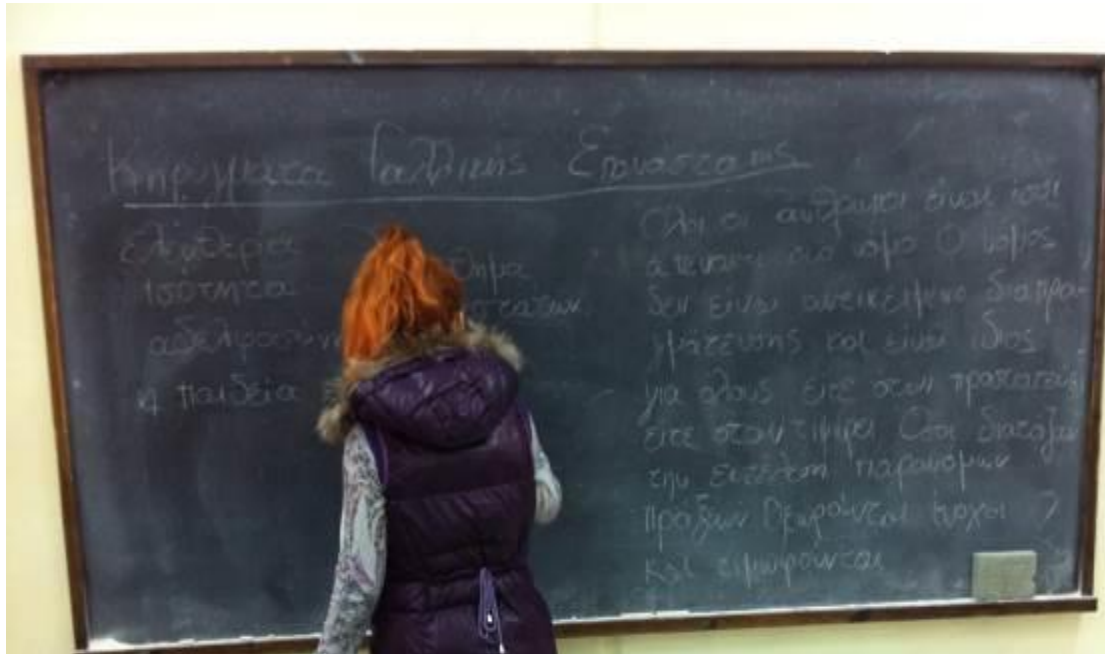 Κηρύγματα Γαλλικής Επανάστασης
ελευθερία
ισότητα θημα
αδελφοσύνη στατων
η παιδεία
Όλοι οι άνθρωποι είναι ίσοι
απέναντι στο νόμο Ο νόμος
δεν είναι αντικείμενο διαπρα-
γμάτευσης και είναι ίδιος
για όλους είτε όταν προστατεύει
είτε όταν τιμωρεί Όσοι διατάζουν
την εκτέλεση παράνομων
πράξεων θεωρούνται ένοχοι
και τιμωρούνται